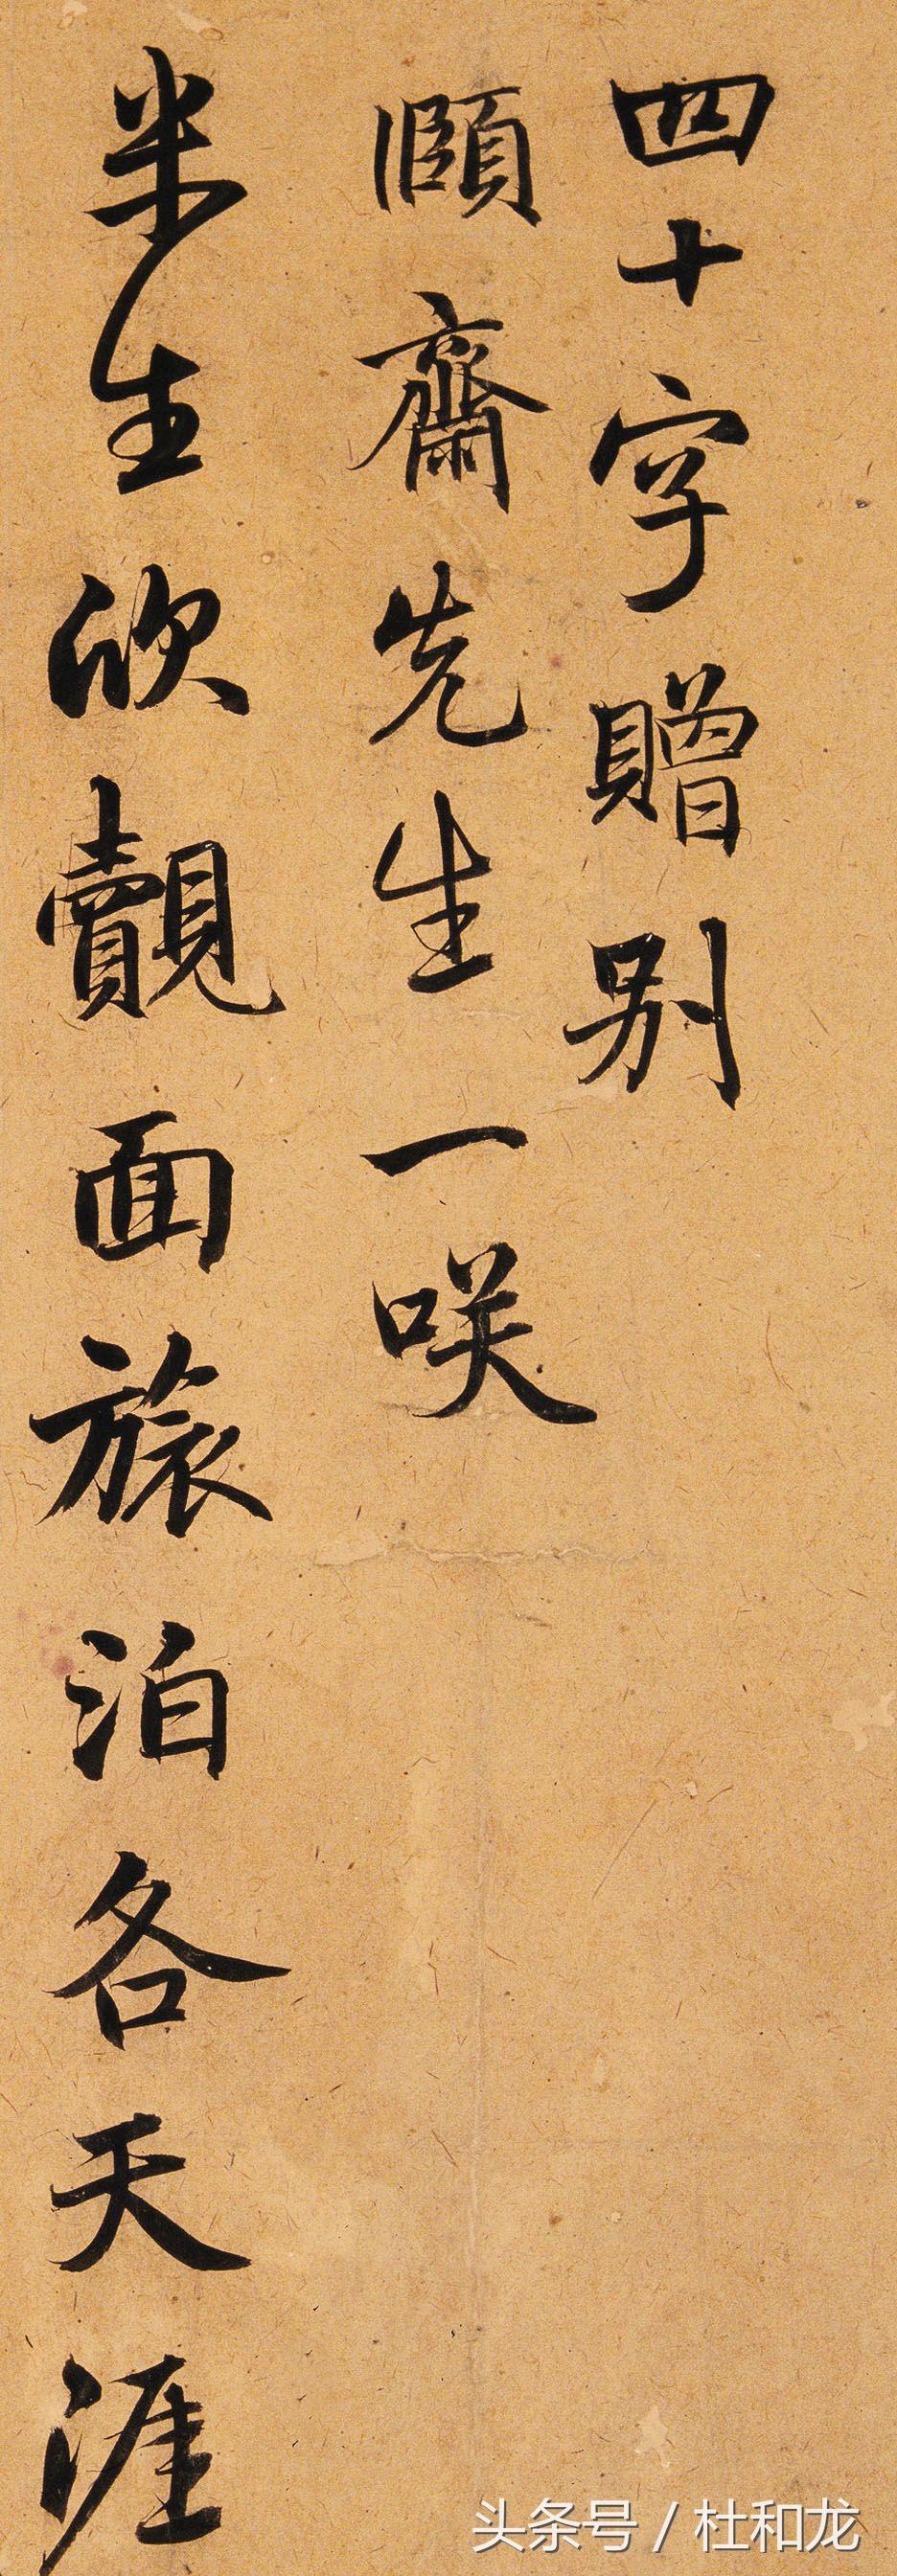 四十字贈别
頤齋先生一咲
半生欣覿面旅泊各天涯
头条号 / 杜和龙